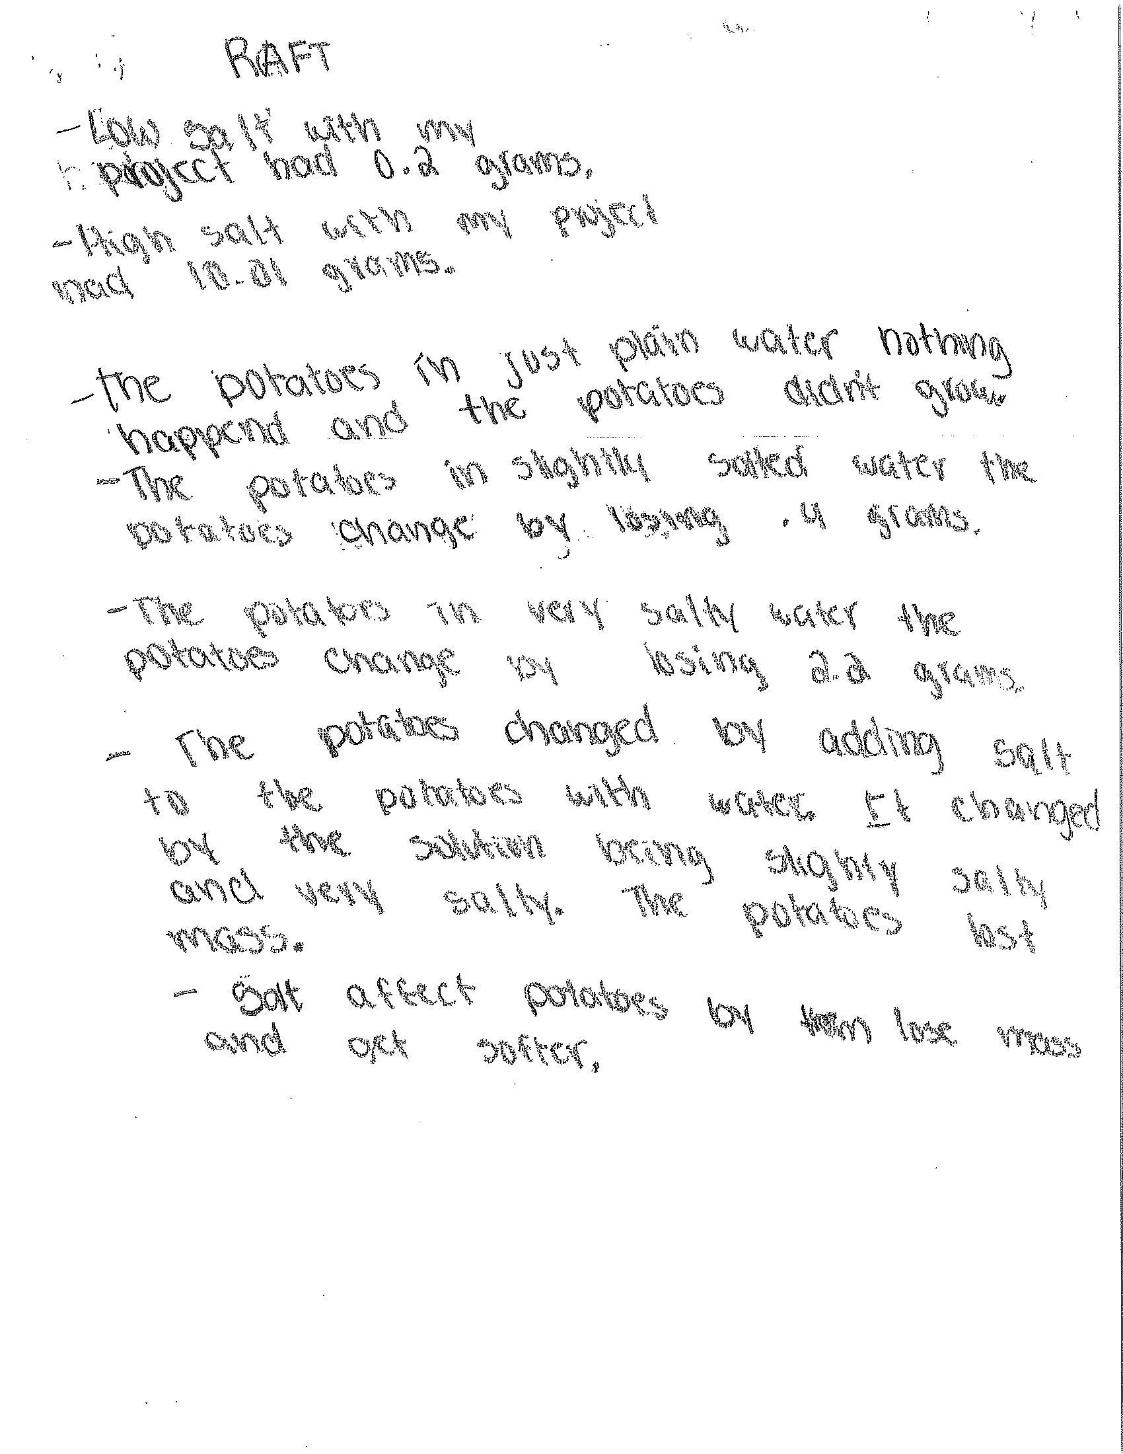 RAFT
- Low salt with my
project had 0.2 grams.
- High salt with my project
had 10.01 grams.
- The potatoes in just plain water nothing
happend and the potatoes didn't grow
- The potatoes in slightly salted water the
potatoes change by losing .4 grams.
- The potatoes in very salty water the
potatoes change by losing 2.2 grams.
- The potatoes changed by adding salt
to the potatoes with water. It changed
by the solution being slighly salty
and very salty. The potatoes lost
mass.
- Salt affect potatoes by lose mass
and get softer.